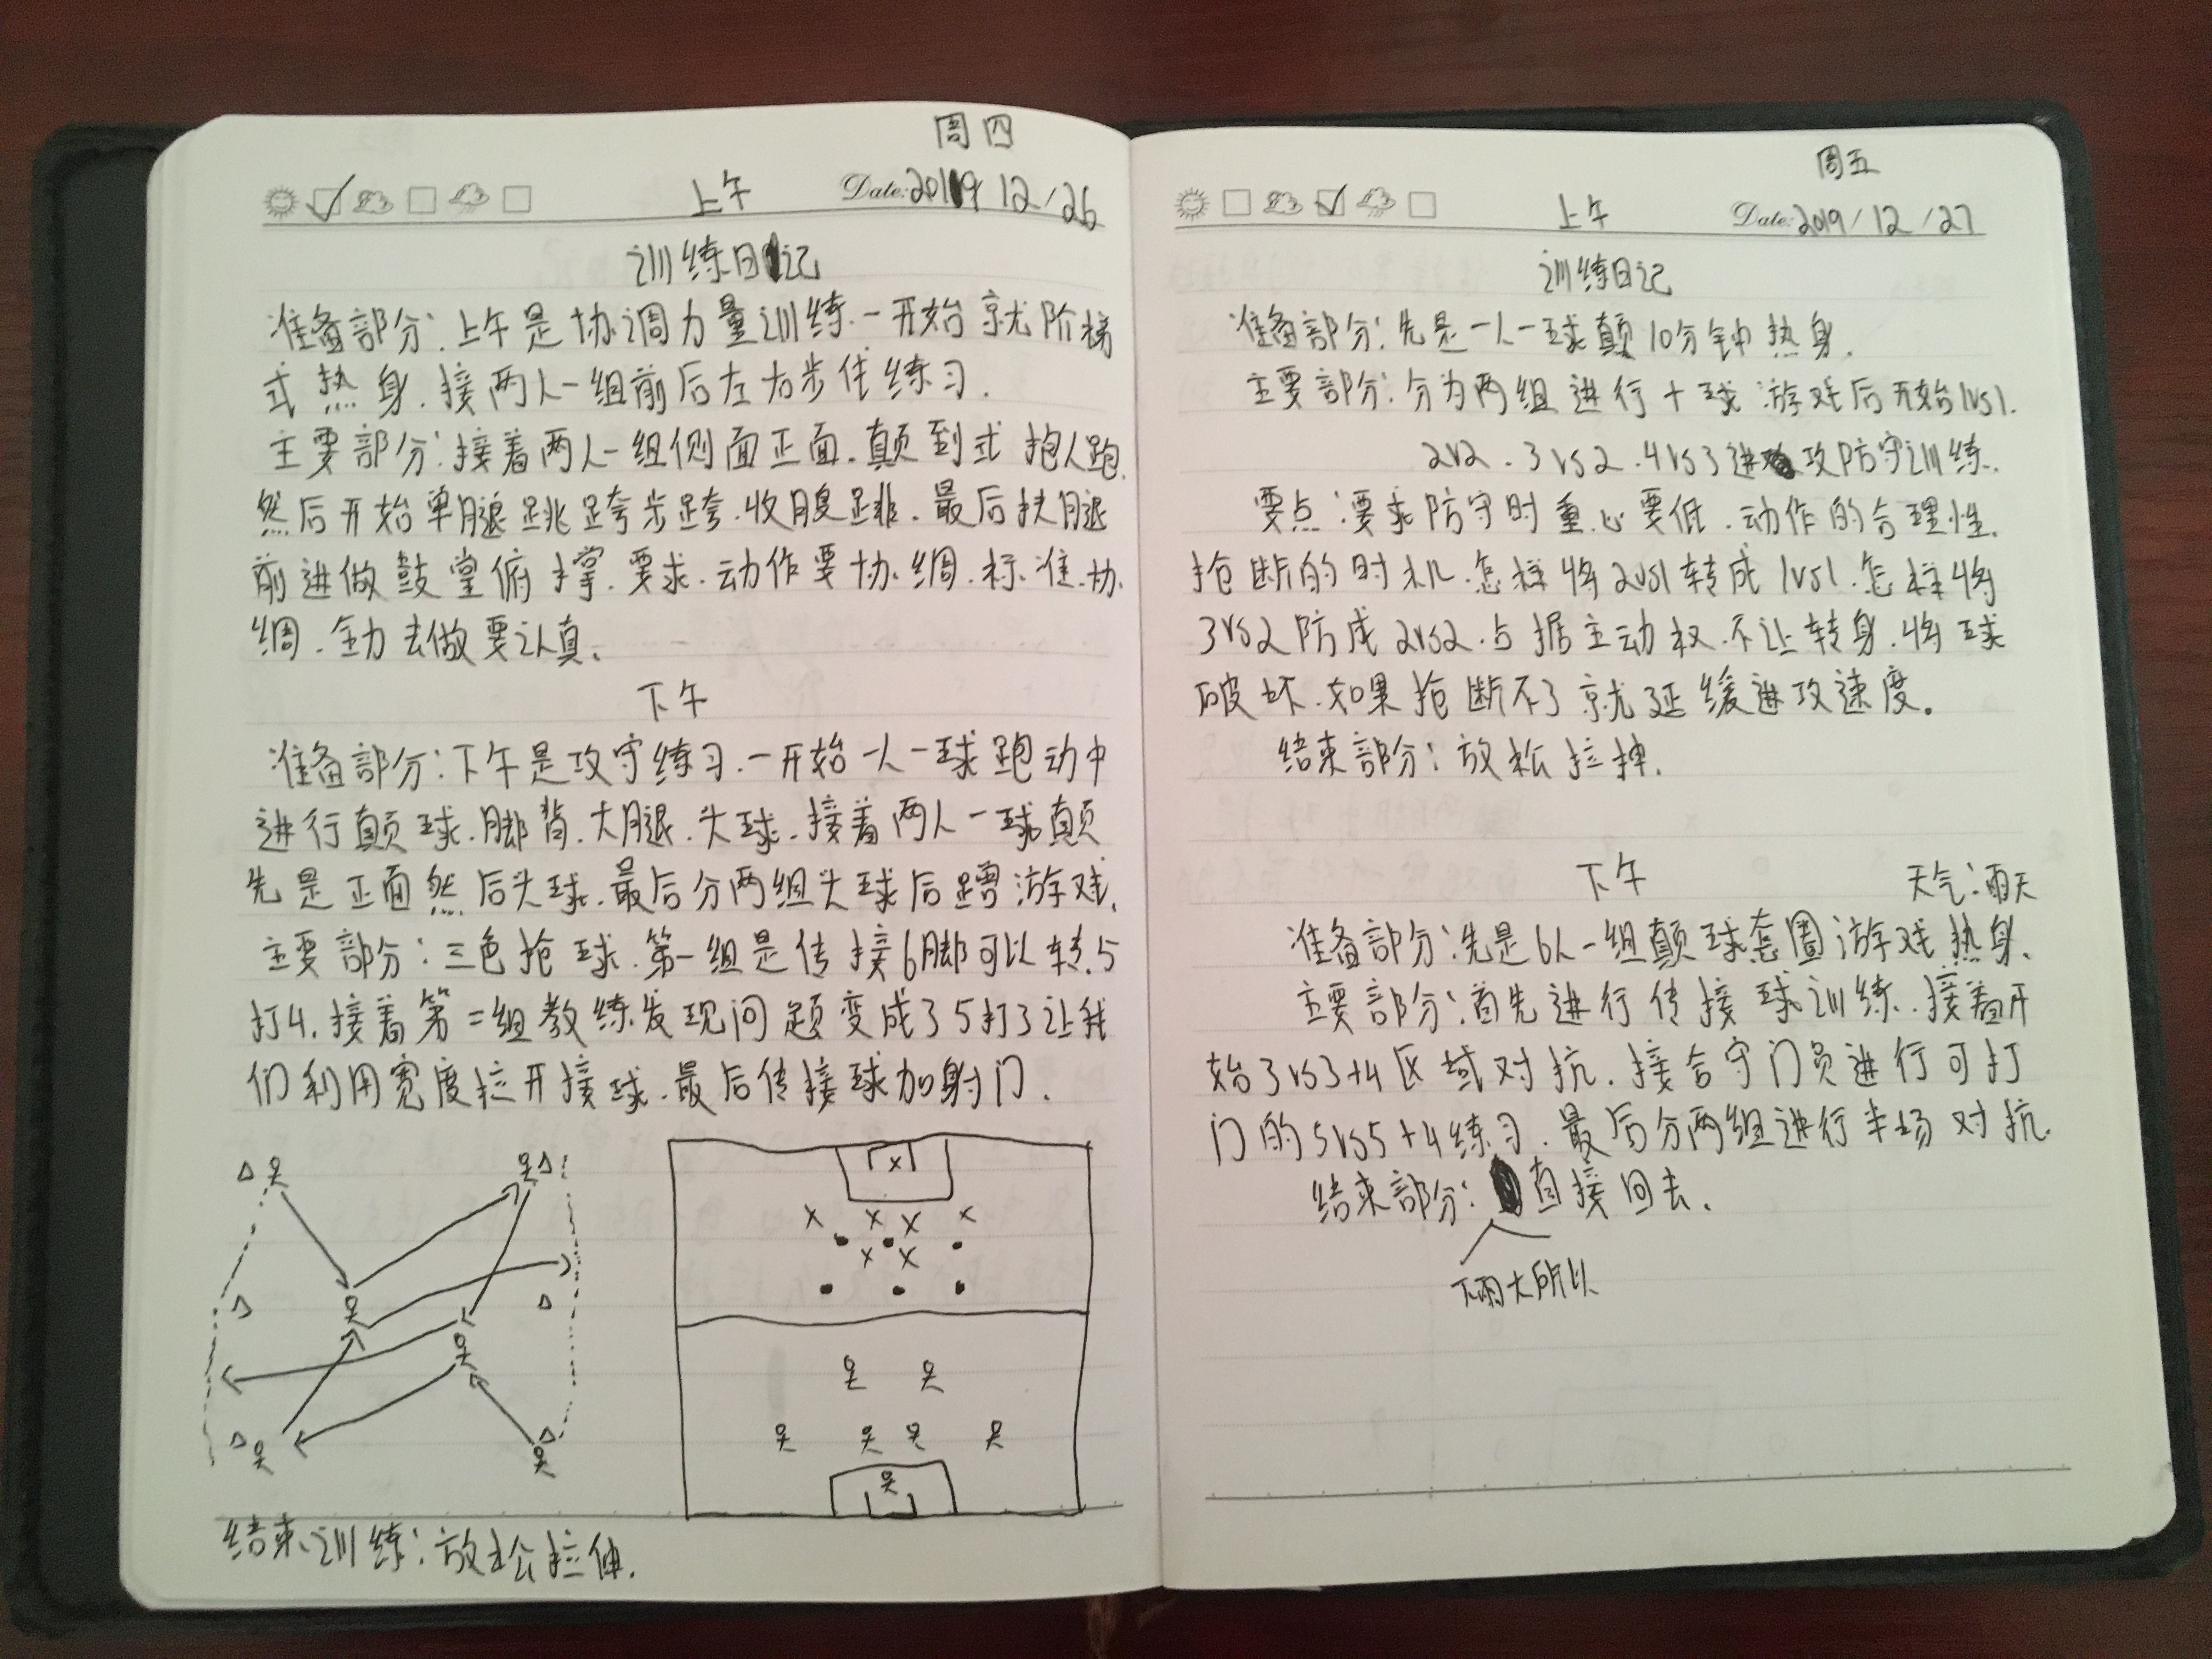 周四
上午 Date: 2019/12/26
训练日记
准备部分:上午是协调力量训练.一开始就阶梯
式热身.接两人一组前后左右步伐练习.
主要部分:接着两人一组侧面正面.颠到式抱人跑.
然后开始单腿跳跨步跨.收腹跳.最后扶腿
前进做鼓掌俯撑.要求.动作要协绸.标准.协
绸.全力去做要认真、
下午
准备部分:下午是攻守练习.一开始一人一球跑动中
进行颠球.脚背.大腿.头球.接着两人一球颠
先是正面然后头球.最后分两组头球后蹲游戏.
主要部分:三色抢球.第一组是传接6脚可以转.5
打4.接着第二组教练发现问题变成了5打3让我
们利用宽度拉开接球.最后传接球加射门.
结束训练:放松拉伸.
周五
上午 Date: 2019/12/27
训练日记
准备部分:先是一人一球颠10分钟热身.
主要部分:分为两组进行十球游戏后开始1vs1.
2v2.3vs2.4vs3进攻防守训练.
要点:要求防守时重心要低.动作的合理性.
抢断的时机.怎样将2vs1转成1vs1.怎样将
3vs2防成2vs2.占据主动权.不让转身.将球
破坏.如果抢断不了就延缓进攻速度。
结束部分:放松拉抻.
下午 天气:雨天
准备部分:先是6人一组颠球套圈游戏热身.
主要部分:首先进行传接球训练.接着开
始3vs3+4区域对抗.接合守门员进行可打
门的5vs5+4练习.最后分两组进行半场对抗.
结束部分:直接回去.
下雨大所以